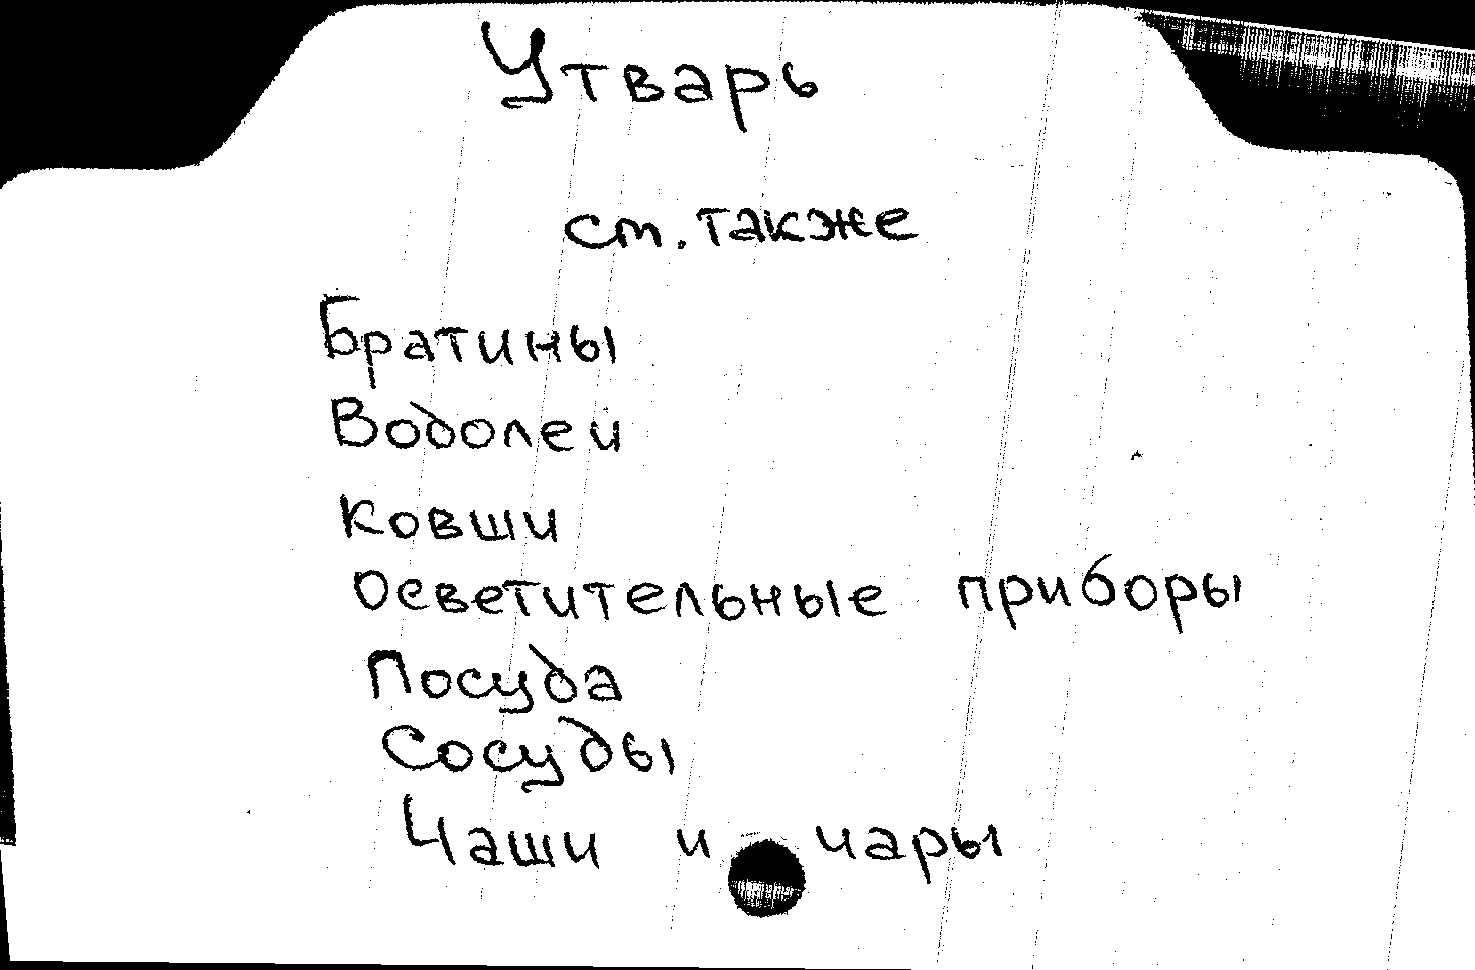 Утварь
см. также
Братины
Водолеи
Ковши
Осветительные приборы
Посуда
Сосуды
Чаши и чары